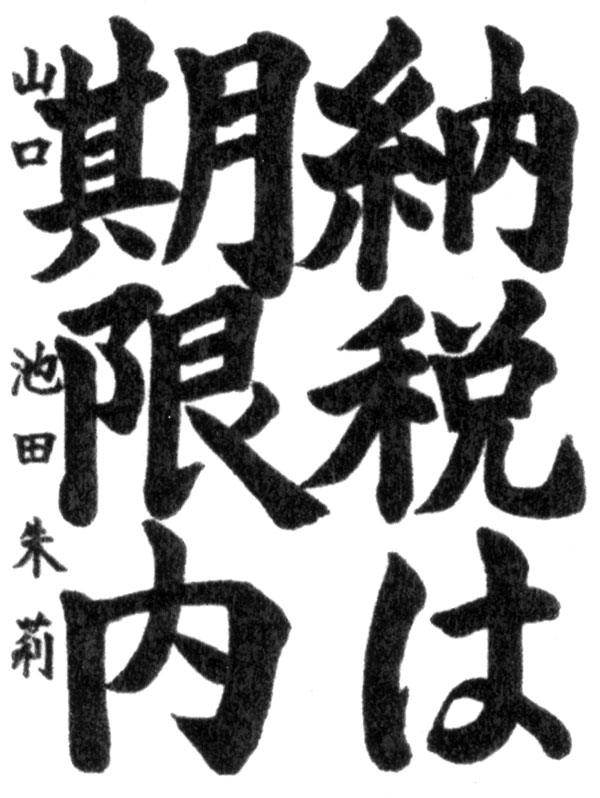 納税は
期限内
山口 池田朱莉